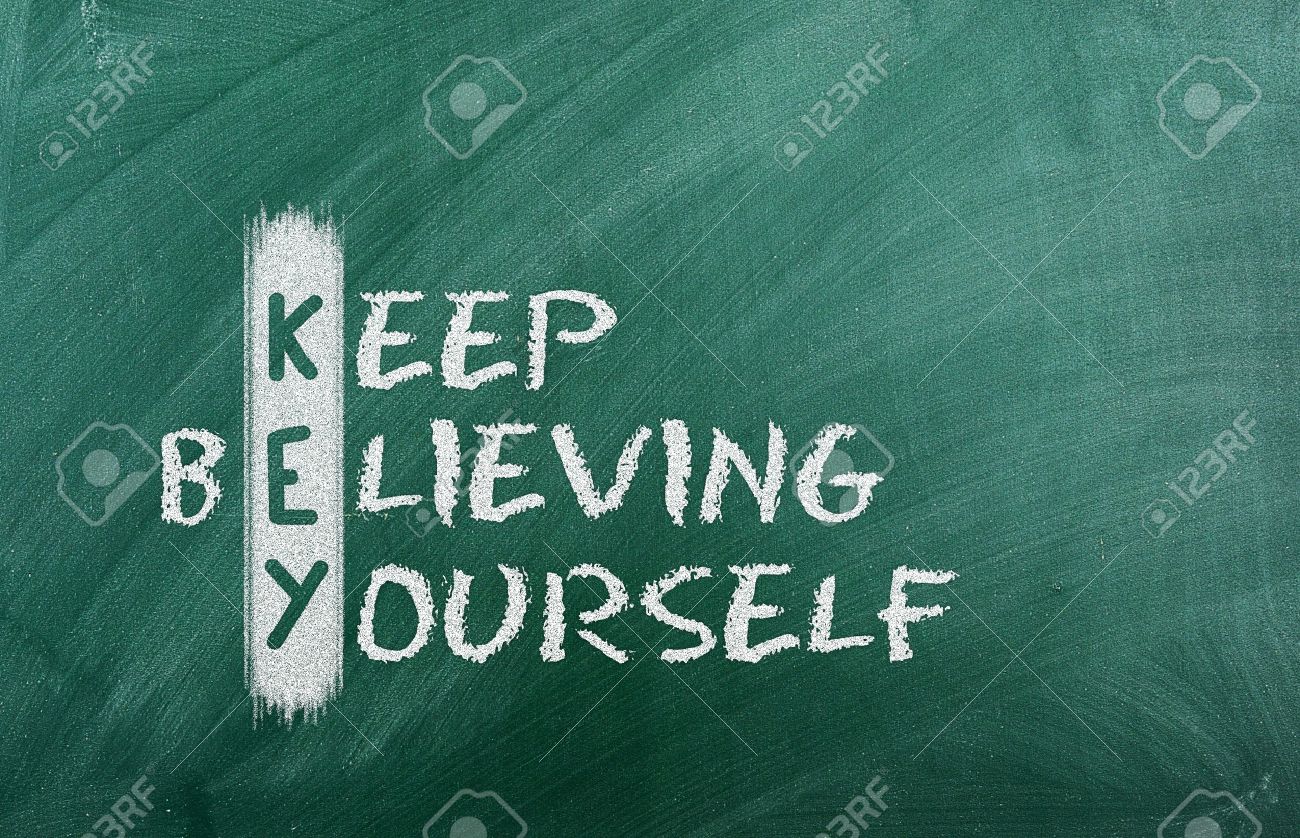 KEEP
BELIEVING
YOURSELF
123RF
123RF
123RF
123RF
123RF